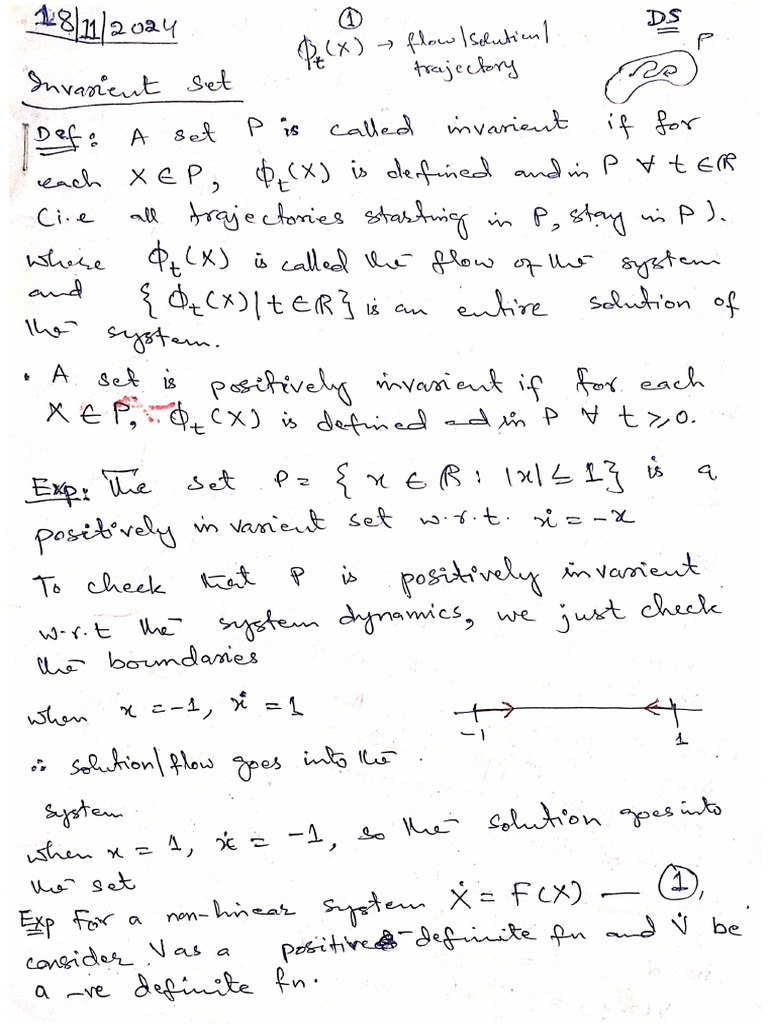 18/11/2024
①
DS
ϕ_t(X) → flow/solution/
trajectory
P
Invarient Set
Def: A set P is called invarient if for
each X ∈ P, ϕ_t(X) is defined and in P ∀ t ∈ ℝ
(i.e all trajectories starting in P, stay in P).
where ϕ_t(X) is called the flow of the system
and {ϕ_t(X) | t ∈ ℝ} is an entire solution of
the system.
• A set is positively invarient if for each
X ∈ P, ϕ_t(X) is defined and in P ∀ t ≥ 0.
Exp: The set P = {x ∈ ℝ : |x| ≤ 1} is a
positively invarient set w.r.t. ẋ = -x
To check that P is positively invarient
w.r.t the system dynamics, we just check
the boundaries
when x = -1, ẋ = 1
-1
1
∴ solution/flow goes into the
system
when x = 1, ẋ = -1, so the solution goes into
the set
Exp For a non-linear system Ẋ = F(X) — ①,
consider V as a positive-definite fn and V̇ be
a -ve definite fn.